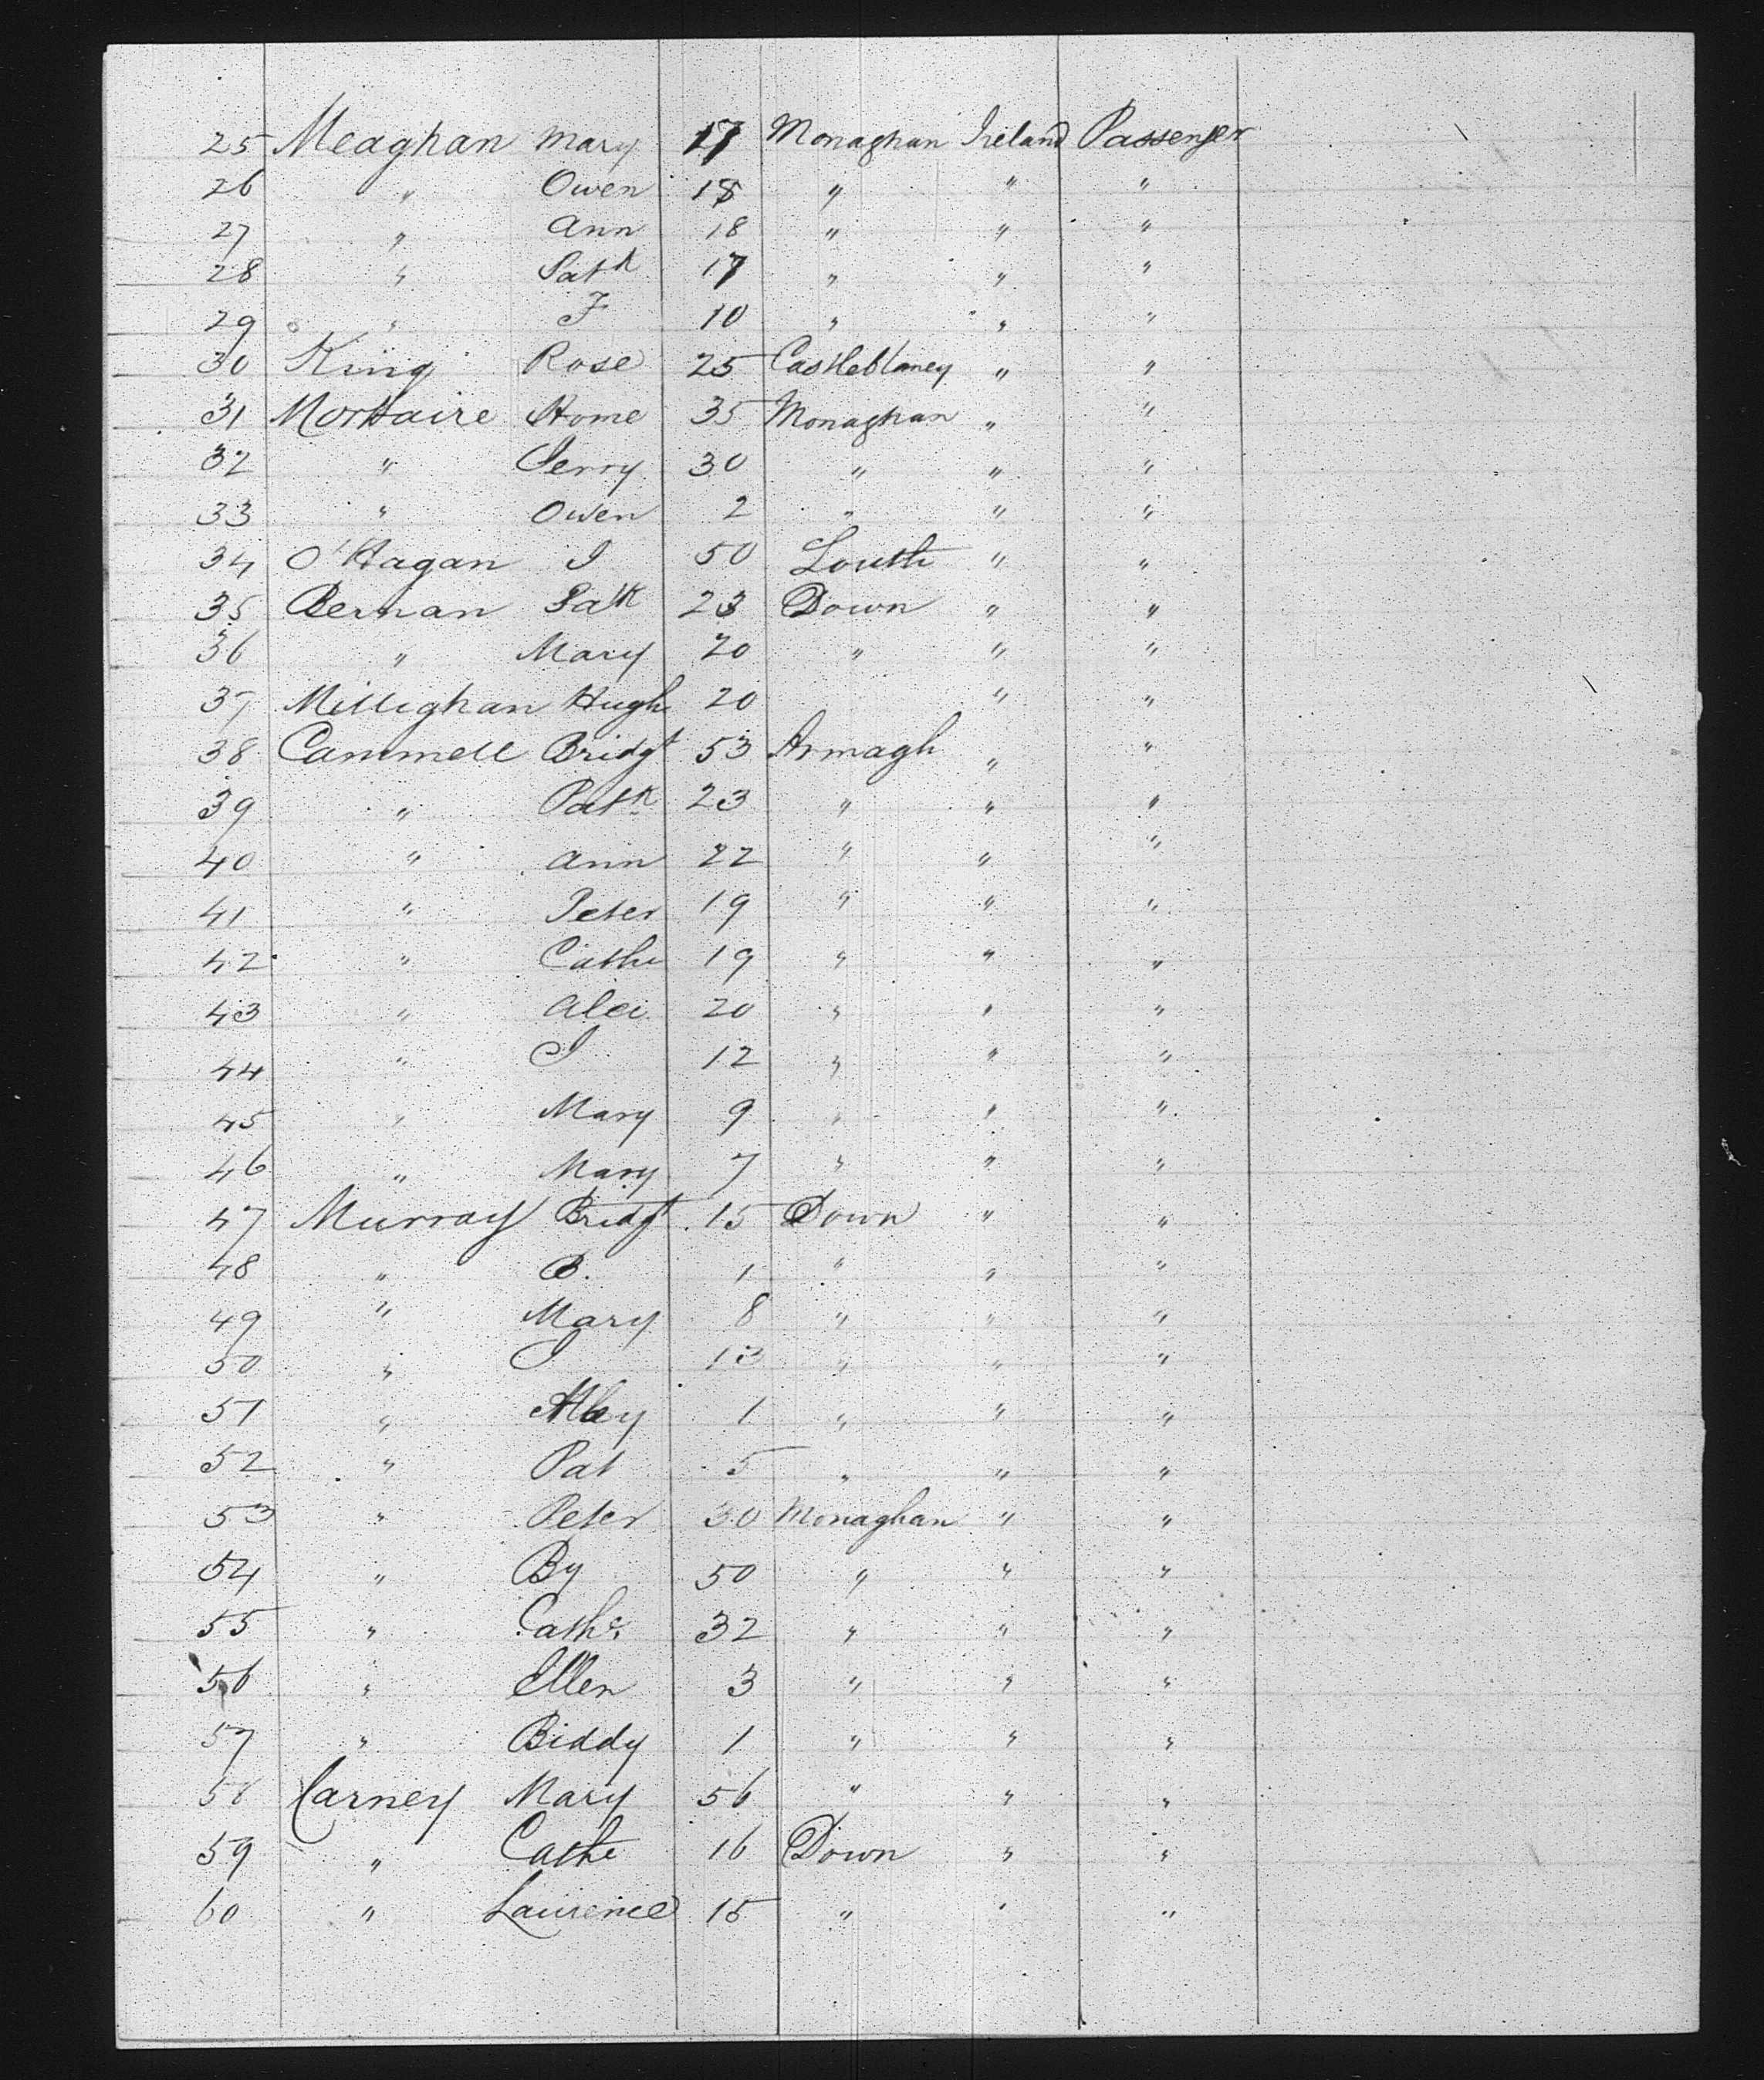 25 Meaghan Mary 17 Monaghan Ireland Passenger
26 " Owen 18 " " "
27 " Ann 18 " " "
28 " Patk 17 " " "
29 " F 10 " " "
30 King Rose 25 Castleblaney " "
31 Home 35 Monaghan " "
32 " Jerry 30 " " "
33 " Owen 2 " " "
34 O'Hagan J 50 Louth " "
35 Bernan Patk 23 Down " "
36 " Mary 20 " " "
37 Millighan Hugh 20 " "
38 Cammell Bridgt 53 Armagh " "
39 " Patk 23 " " "
40 " Ann 22 " " "
41 " Peter 19 " " "
42 " Cathe 19 " " "
43 " 20 " " "
44 " J 12 " " "
45 " Mary 9 " " "
46 " Mary 7 " " "
47 Murray Bridgt 15 Down " "
48 " B. 1 " " "
49 " Mary 8 " " "
50 " J 13 " " "
51 " 1 " " "
52 " Pat 5 " " "
53 " Peter 30 Monaghan " "
54 " By 50 " " "
55 " Cathe 32 " " "
56 " Ellen 3 " " "
57 " Biddy 1 " " "
58 Carney Mary 56 " " "
59 " Cathe 16 Down " "
60 " Laurence 15 " " "